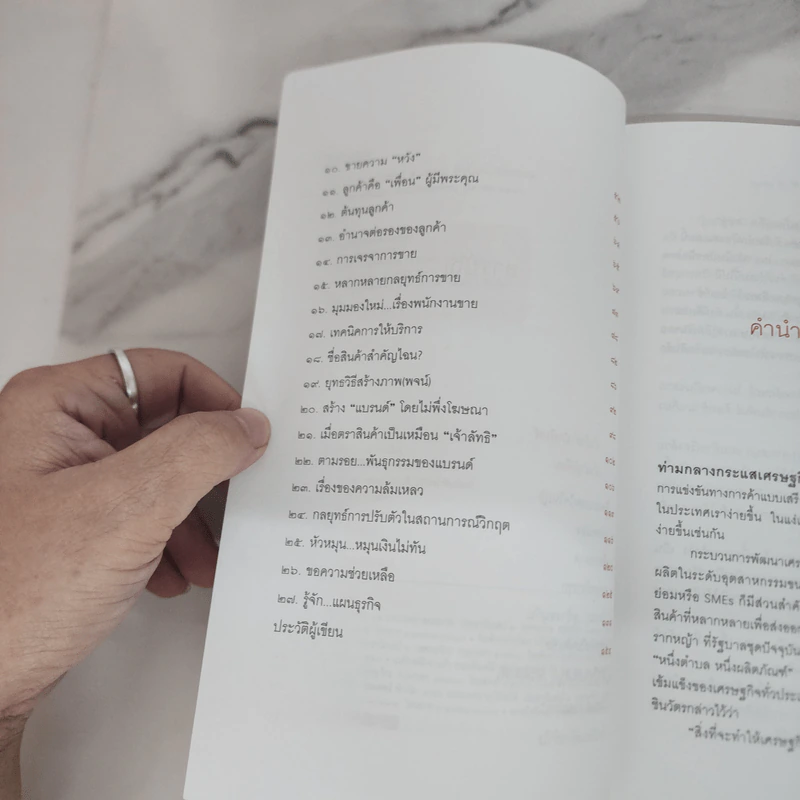 ๑๐. ขายความ “หวัง”
๑๑. ลูกค้าคือ “เพื่อน” ผู้มีพระคุณ
๑๒. ต้นทุนลูกค้า
๑๓. อำนาจต่อรองของลูกค้า
๑๔. การเจรจาการขาย
๑๕. หลากหลายกลยุทธ์การขาย
๑๖. มุมมองใหม่...เรื่องพนักงานขาย
๑๗. เทคนิคการให้บริการ
๑๘. ชื่อสินค้าสำคัญไฉน?
๑๙. ยุทธวิธีสร้างภาพ(พจน์)
๒๐. สร้าง “แบรนด์” โดยไม่พึ่งโฆษณา
๒๑. เมื่อตราสินค้าเป็นเหมือน “เจ้าลัทธิ”
๒๒. ตามรอย...พันธุกรรมของแบรนด์
๒๓. เรื่องของความล้มเหลว
๒๔. กลยุทธ์การปรับตัวในสถานการณ์วิกฤต
๒๕. หัวหมุน...หมุนเงินไม่ทัน
๒๖. ขอความช่วยเหลือ
๒๗. รู้จัก...แผนธุรกิจ
ประวัติผู้เขียน
คำนำ
ท่ามกลางกระแสเศรษฐกิ
การแข่งขันทางการค้าแบบเสรี
ในประเทศเราง่ายขึ้น ในแง่
ง่ายขึ้นเช่นกัน
กระบวนการพัฒนาเศร
ผลิตในระดับอุตสาหกรรมขน
ย่อมหรือ SMEs ก็มีส่วนสำคั
สินค้าที่หลากหลายเพื่อส่งออก
รากหญ้า ที่รัฐบาลชุดปัจจุบัน
“หนึ่งตำบล หนึ่งผลิตภัณฑ์”
เข้มแข็งของเศรษฐกิจทั่วประเ
ชินวัตรกล่าวไว้ว่า
“สิ่งที่จะทำให้เศรษฐกิ